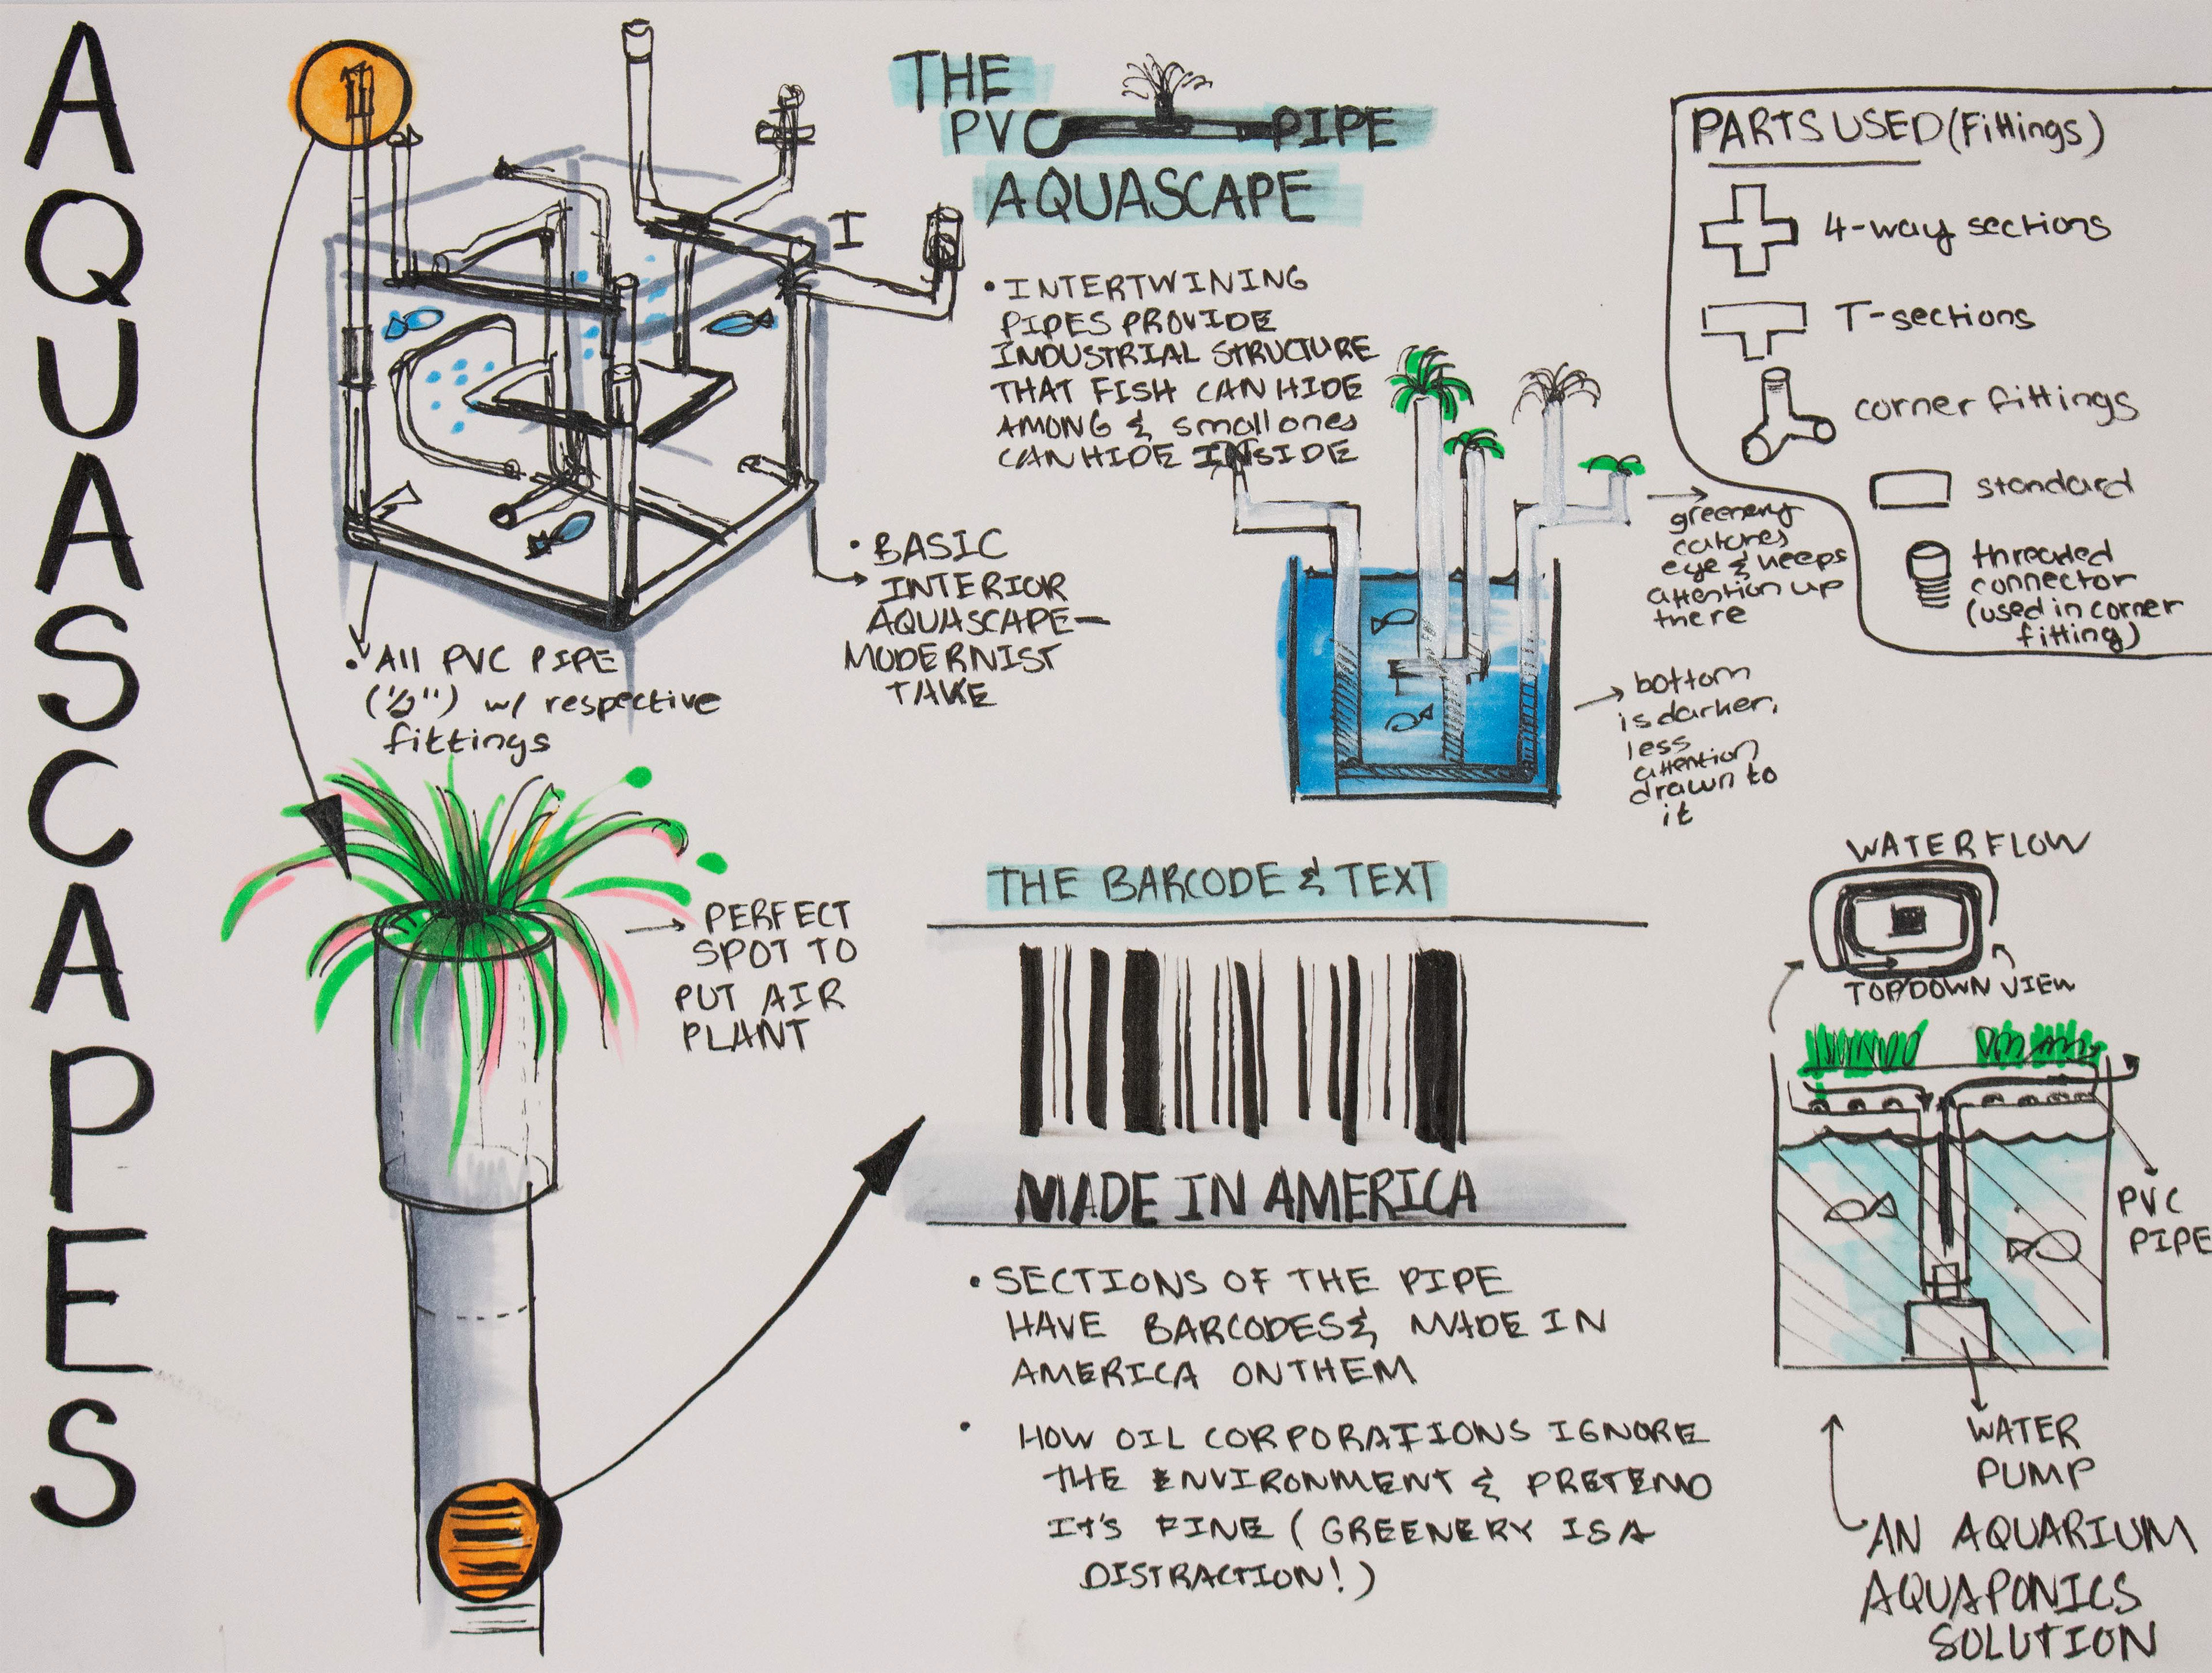 AQUASCAPES
THE
PVC PIPE
AQUASCAPE
• INTERTWINING
PIPES PROVIDE
INDUSTRIAL STRUCTURE
THAT FISH CAN HIDE
AMONG & small ones
CAN HIDE INSIDE
I
• BASIC
INTERIOR
AQUASCAPE—
MODERNIST
TAKE
• All PVC PIPE
(1/2") w/ respective
fittings
→ PERFECT
SPOT TO
PUT AIR
PLANT
PARTS USED (Fittings)
4-way sections
T-sections
corner fittings
standard
threaded
connector
(used in corner
fitting)
greenery
catches
eye & keeps
attention up
there
bottom
is darker,
less
attention
drawn to
it
THE BARCODE & TEXT
MADE IN AMERICA
• SECTIONS OF THE PIPE
HAVE BARCODES & MADE IN
AMERICA ON THEM
• HOW OIL CORPORATIONS IGNORE
THE ENVIRONMENT & PRETEND
IT'S FINE (GREENERY IS A
DISTRACTION!)
WATER FLOW
TOP/DOWN VIEW
PVC
PIPE
WATER
PUMP
AN AQUARIUM
AQUAPONICS
SOLUTION